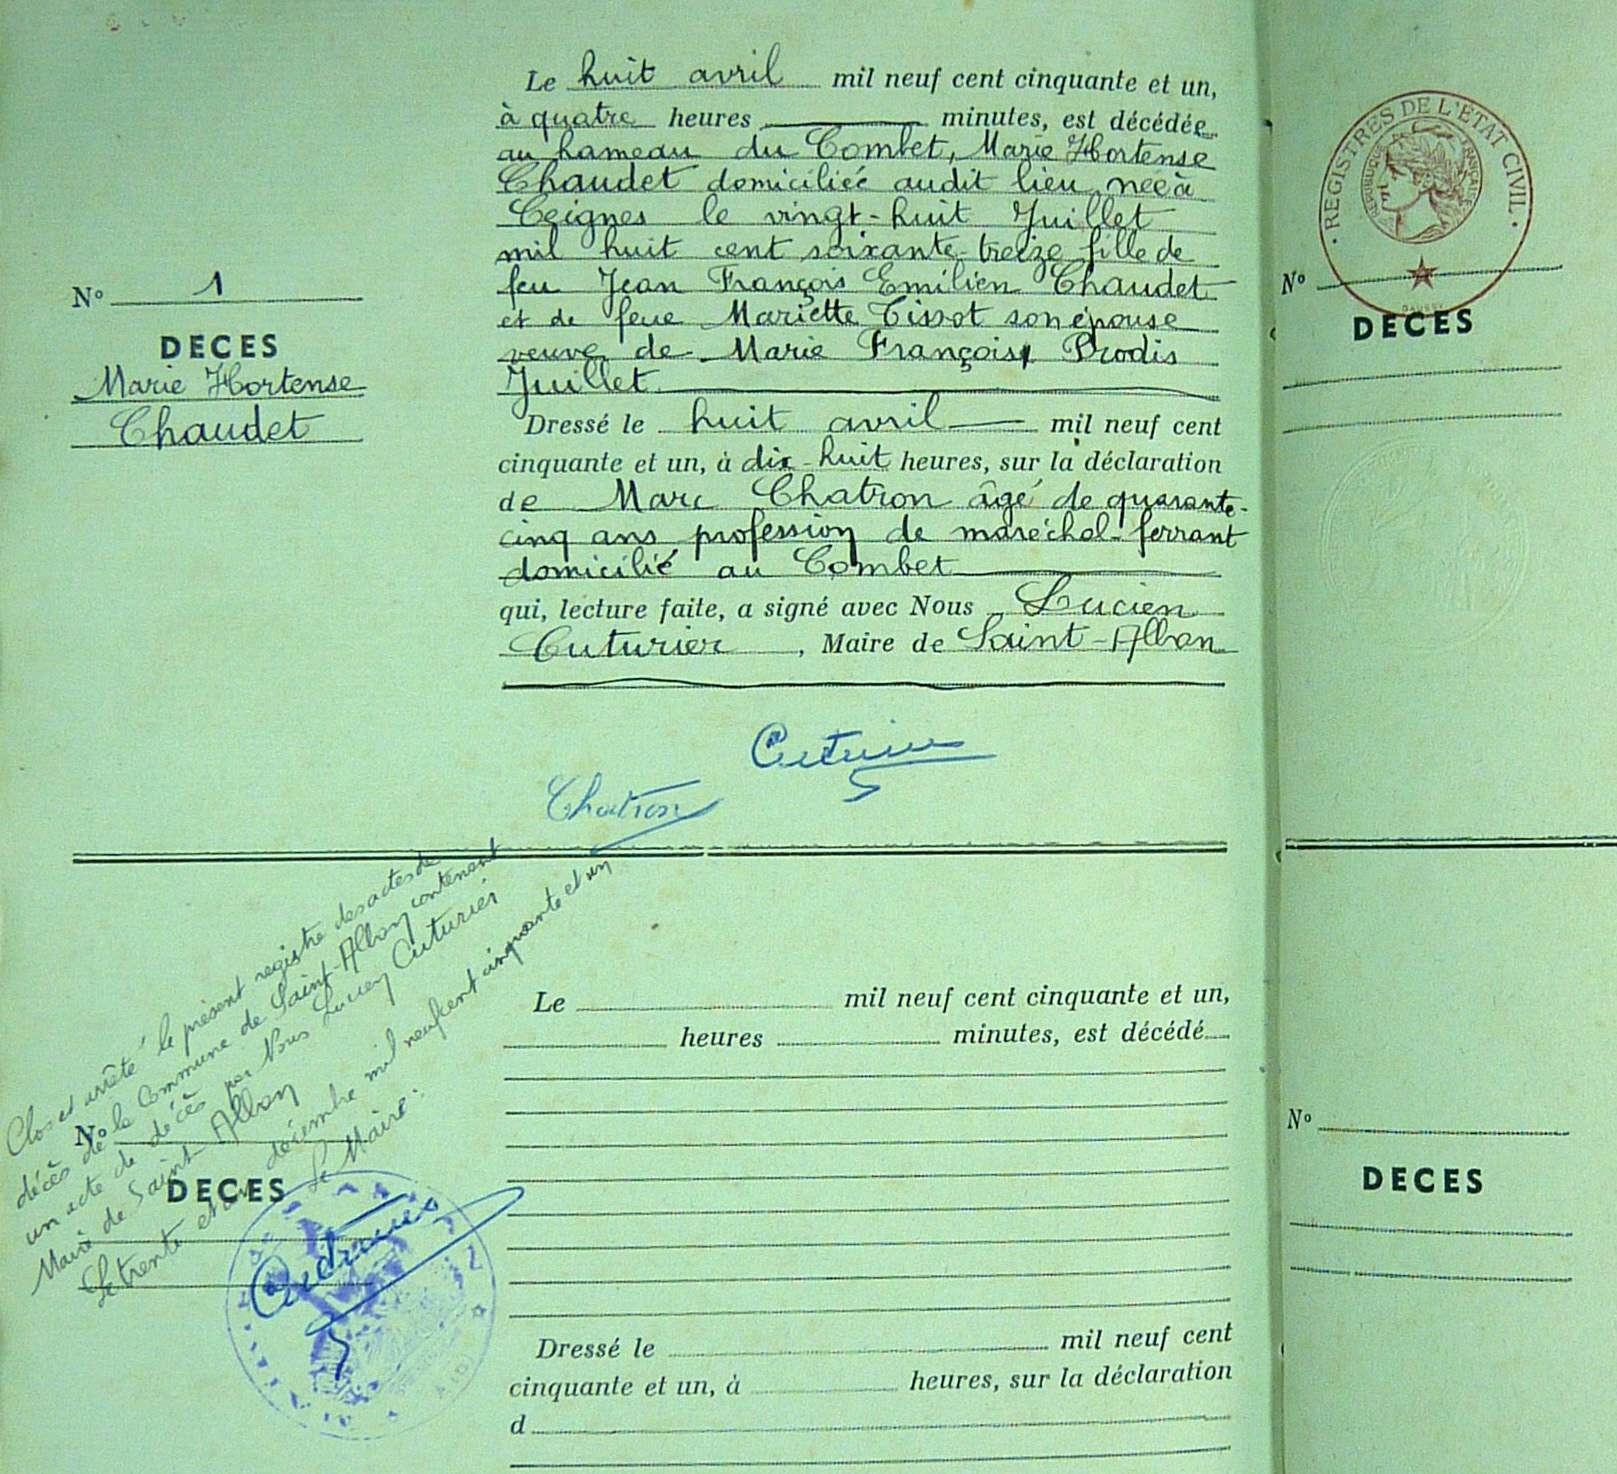 Le huit avril mil neuf cent cinquante et un,
à quatre heures minutes, est décédée
au hameau du Combet, Marie Hortense
Chaudet domiciliée audit lieu née à
Ceignes le vingt-huit Juillet
mil huit cent soixante-treize fille de
feu Jean François Emilien Chaudet
et de feue Mariette Tissot son épouse
veuve de Marie François Prodis
Juillet
Dressé le huit avril mil neuf cent
cinquante et un, à dix-huit heures, sur la déclaration
de Marc Chatron âgé de quarante-
cinq ans profession de maréchal-ferrant
domicilié au Combet
qui, lecture faite, a signé avec Nous Lucien
Cuturier, Maire de Saint-Alban
Nº 1
DECES
Marie Hortense
Chaudet
Cuturier
Chatron
Clos et arrêté le présent registre des actes de
décès de la Commune de Saint-Alban contenant
un acte de décès par Nous Lucien Cuturier
Maire de Saint-Alban
Le trente et un décembre mil neuf cent cinquante et un
Le Maire:
Cuturier
Nº
DECES
Le mil neuf cent cinquante et un,
heures minutes, est décédé
Dressé le mil neuf cent
cinquante et un, à heures, sur la déclaration
d
REGISTRES DE L'ÉTAT CIVIL
RÉPUBLIQUE FRANÇAISE
Nº
DECES
Nº
DECES